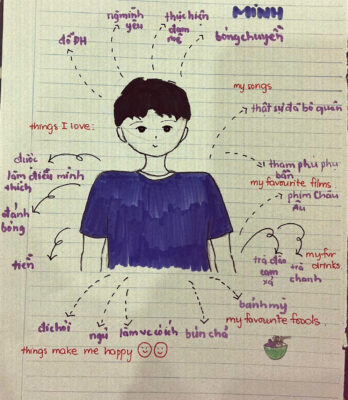 MINH
người mình yêu
thực hiện đam mê
đỗ ĐH
bóng chuyền
my songs
thật sự đã bỏ quên
things I love:
được làm điều mình thích
tham phú phụ bần
my favourite films
phim Châu Âu
đánh bóng
tiền
my fvr drinks
trà đào cam xả
trà chanh
bánh mỳ
đi chơi
ngủ
làm vc có ích
bún chả
my favourite foods
things make me happy